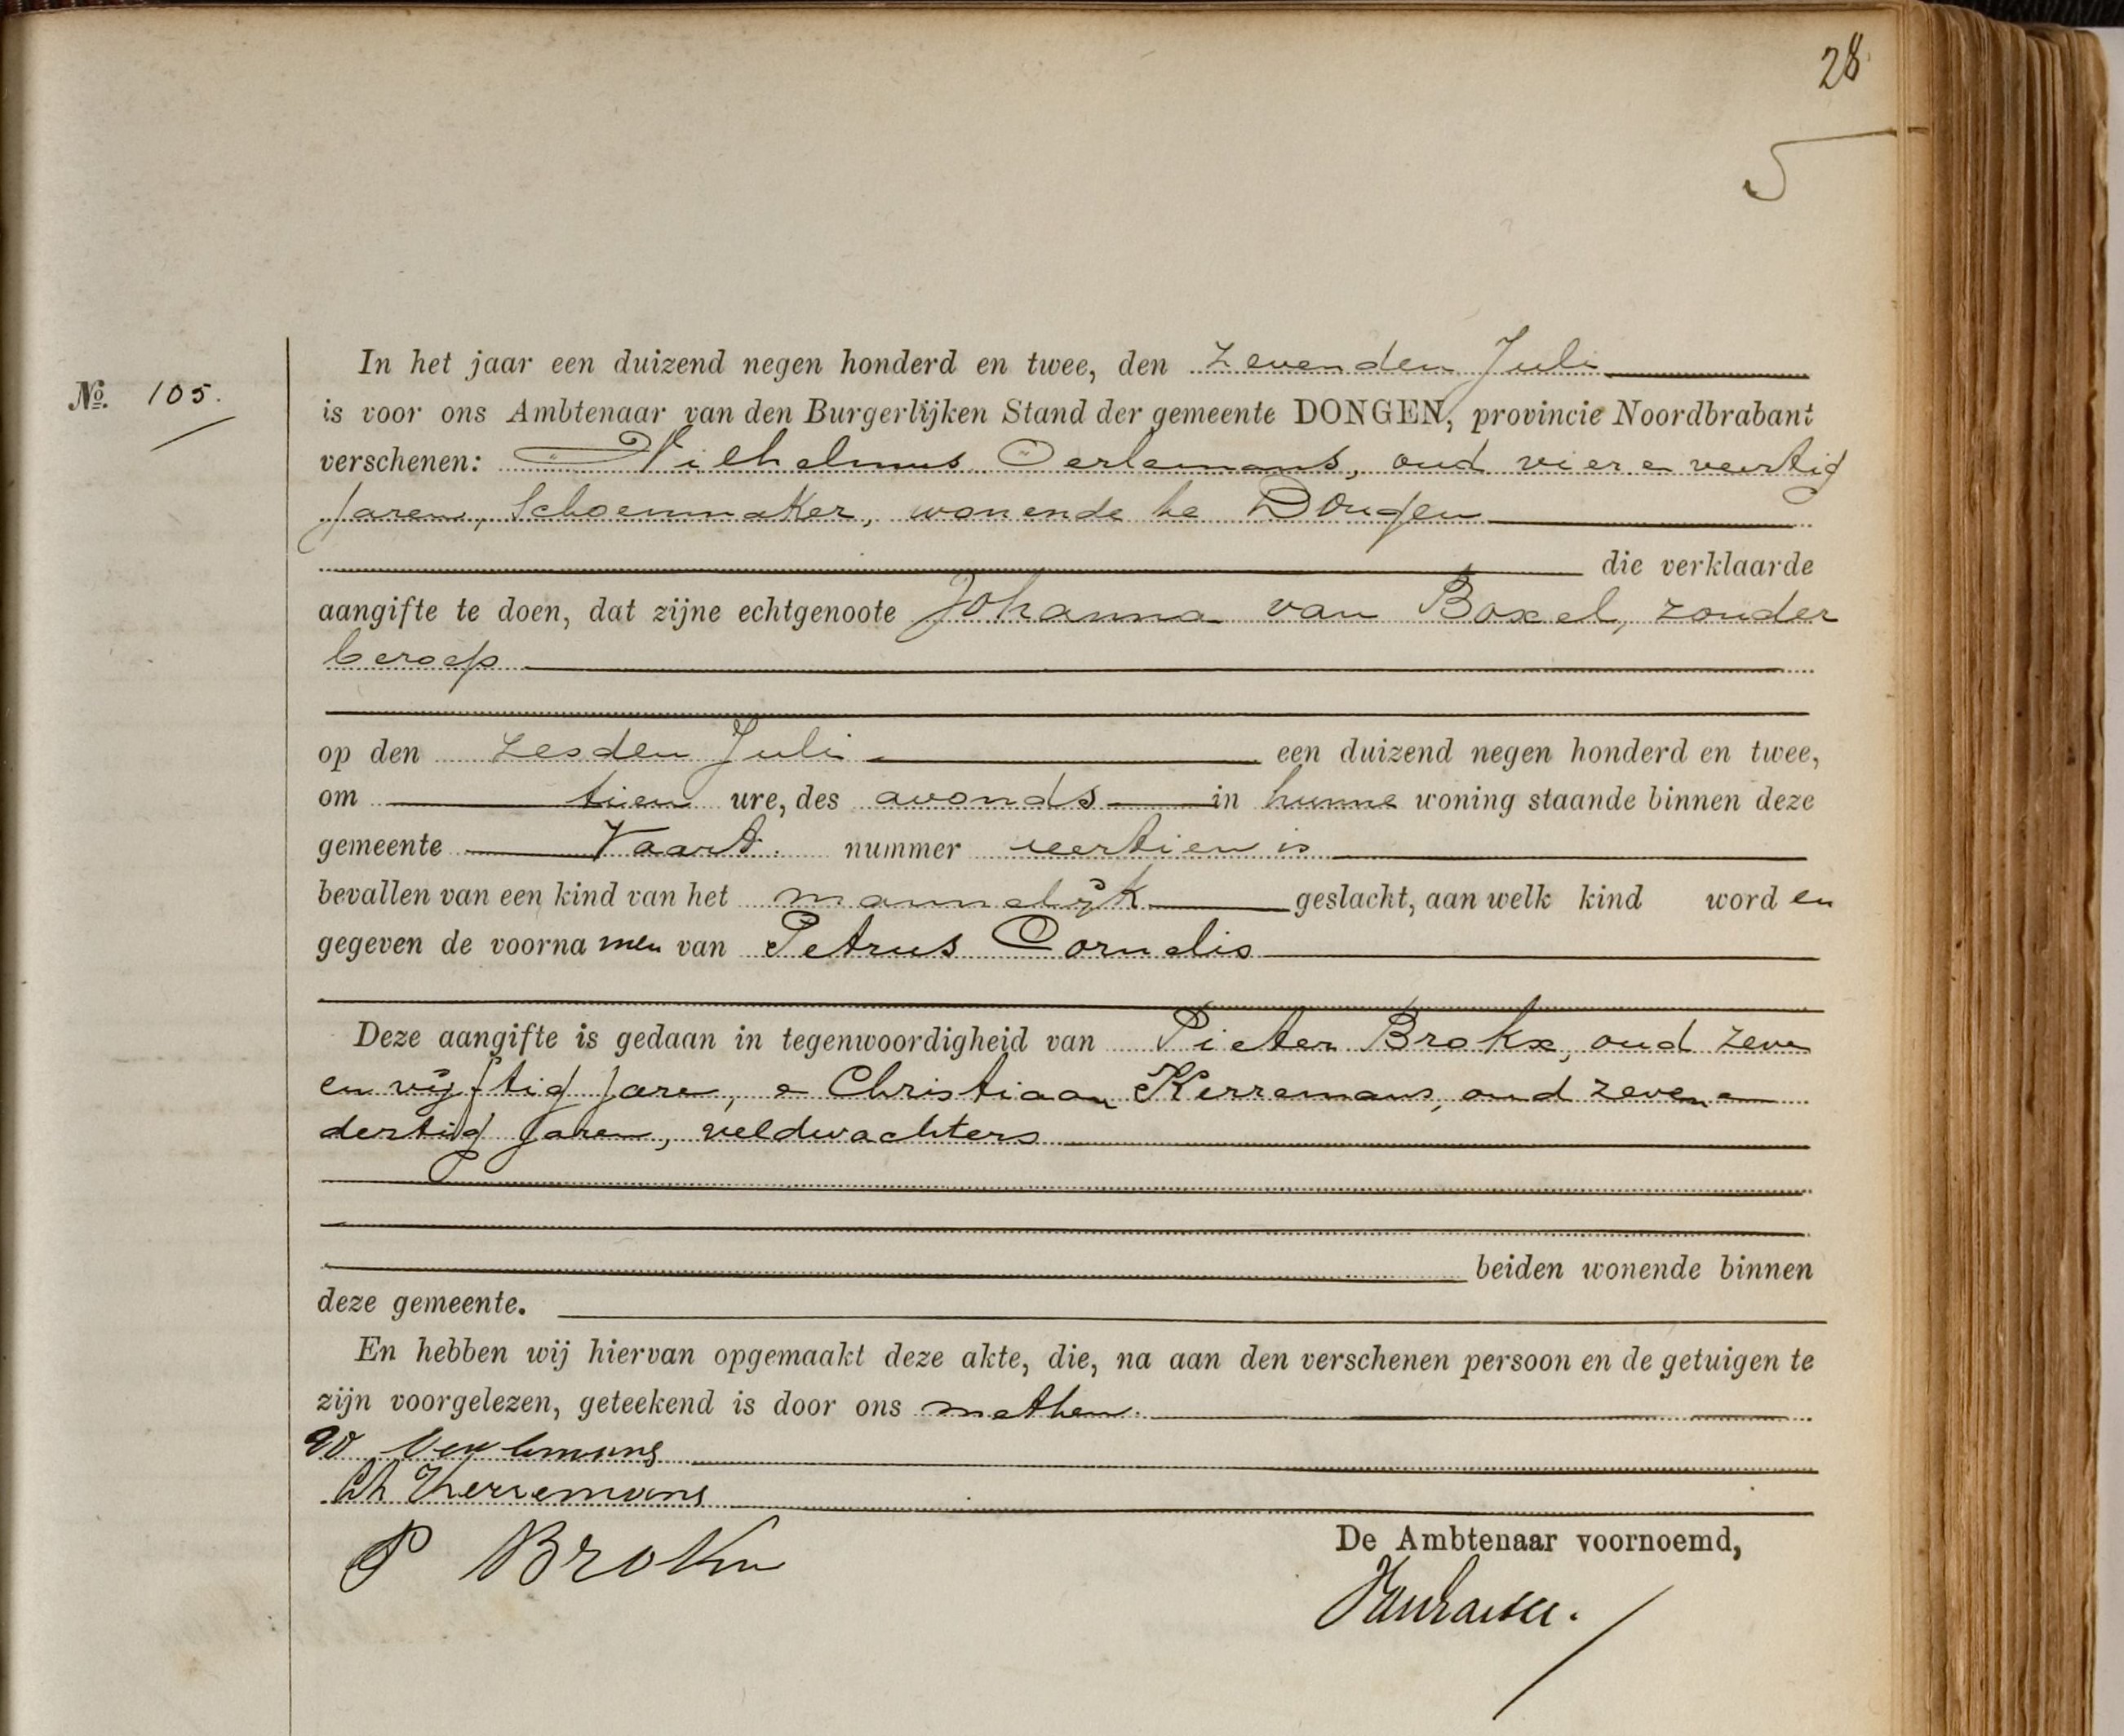 28
5
No. 105.
In het jaar een duizend negen honderd en twee, den zevenden Juli
is voor ons Ambtenaar van den Burgerlijken Stand der gemeente DONGEN, provincie Noordbrabant
verschenen: Wilhelmus Oerlemans, oud vier en veertig
Jaren, Schoenmaker, wonende te Dongen
die verklaarde
aangifte te doen, dat zijne echtgenoote Johanna van Boxel, zonder
beroep
op den zesden Juli een duizend negen honderd en twee,
om tien ure, des avonds in hunne woning staande binnen deze
gemeente Vaart. nummer veertien is
bevallen van een kind van het mannelijk geslacht, aan welk kind worden
gegeven de voornamen van Petrus Cornelis
Deze aangifte is gedaan in tegenwoordigheid van Pieter Brokx, oud zeven
en vijftig Jaren, en Christiaan Kerremans, oud zeven en
dertig Jaren, veldwachters
beiden wonende binnen
deze gemeente.
En hebben wij hiervan opgemaakt deze akte, die, na aan den verschenen persoon en de getuigen te
zijn voorgelezen, geteekend is door ons met hen.
W Oerlemans
Ch Kerremans
P Brokx
De Ambtenaar voornoemd,